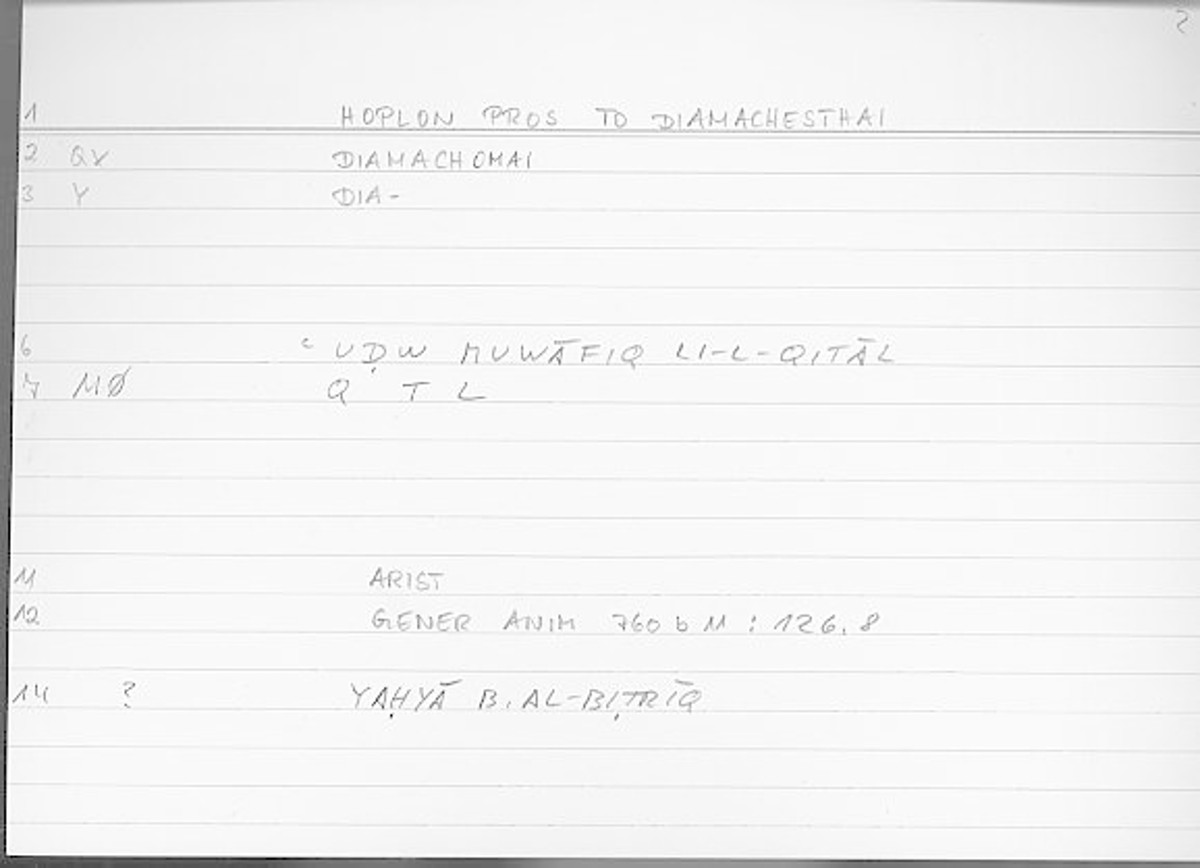 2
1 HOPLON PROS TO DIAMACHESTHAI
2 QV DIAMACHOMAI
3 Y DIA-
6 ʿUḌW MUWĀFIQ LI-L-QITĀL
7 MØ Q T L
11 ARIST
12 GENER ANIM 760 b 11 : 126.8
14 ? YAḤYĀ B. AL-BIṬRĪQ